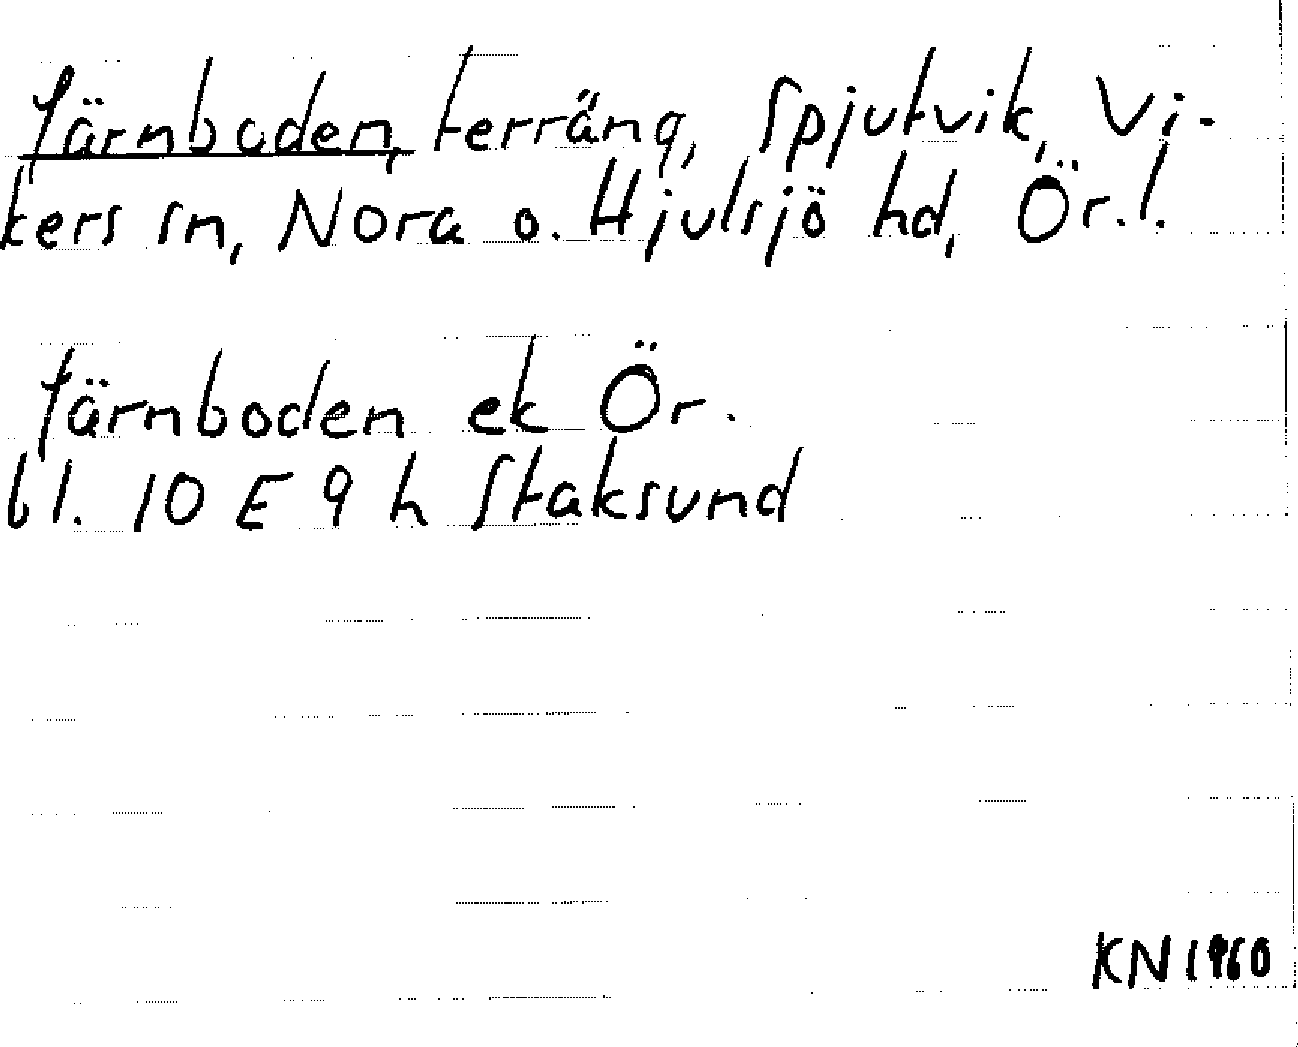 Järnboden, terräng, Spjutvik, Vi-
kers sn, Nora o. Hjulsjö hd, Ör. l.
Järnboden ek Ör.
bl. 10 E 9 h Staksund
KN 1960